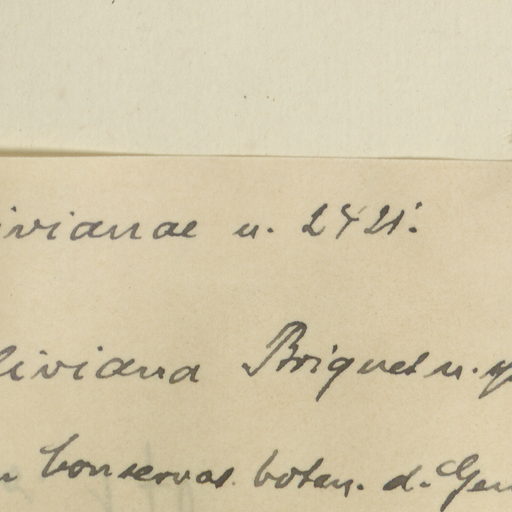 ivianae n. 2421.
liviana Briquet n. sp
n conservat. botan. d. Gen